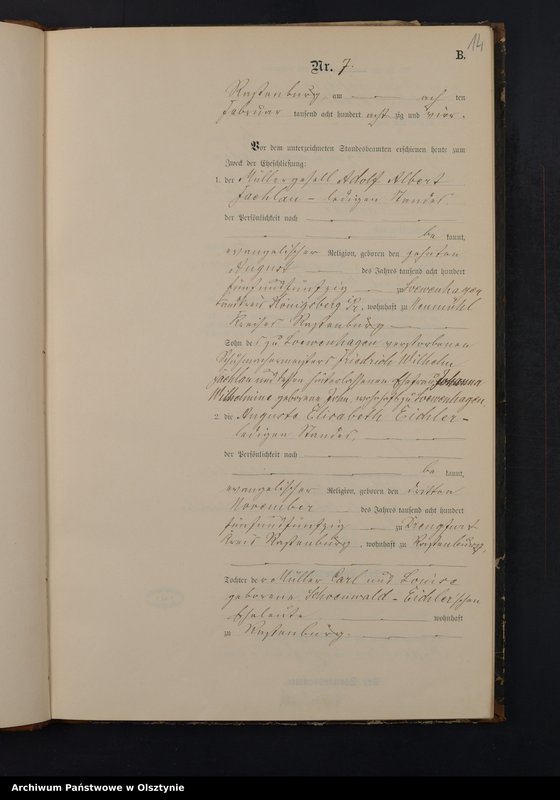 14
B.
Nr. 7.
Rastenburg am acht ten
Februar tausend acht hundert acht zig und vier.
Vor dem unterzeichneten Standesbeamten erschienen heute zum
Zweck der Eheschließung:
1. der Müllergesell Adolf Albert
ledigen Standes
der Persönlichkeit nach
be kannt,
evangelischer Religion, geboren den zehnten
August des Jahres tausend acht hundert
fünfundfünfzig zu Loewenhagen
Landkreis Königsberg Pr., wohnhaft zu Neumühl
Kreises Rastenburg
Sohn des zu Loewenhagen verstorbenen
Schuhmachermeisters Friedrich Wilhelm
und dessen hinterlassenen Ehefrau Johanna
Wilhelmine geborene John, wohnhaft zu Loewenhagen
2. die Auguste Elisabeth Eichler
ledigen Standes,
der Persönlichkeit nach
be kannt,
evangelischer Religion, geboren den dritten
November des Jahres tausend acht hundert
fünfundfünfzig zu
Kreis Rastenburg, wohnhaft zu Rastenburg,
Tochter der Müller Carl und Louise
geborene Schoenwald - Eichler'schen
Eheleute wohnhaft
zu Rastenburg.
Archiwum Państwowe w Olsztynie